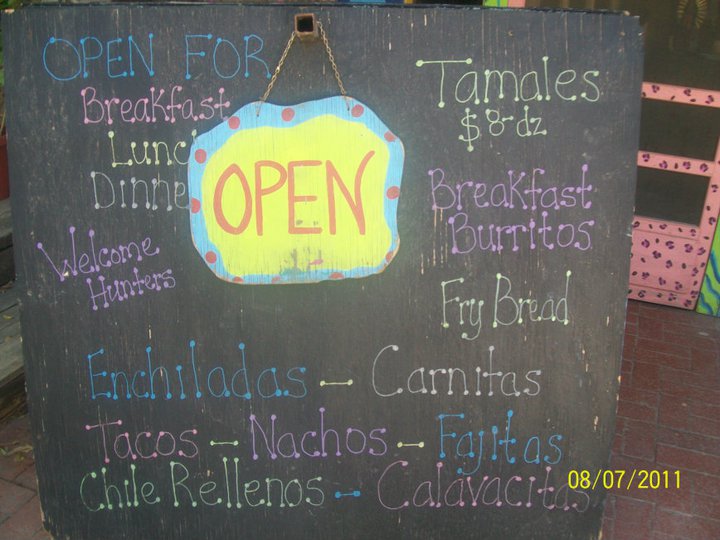 OPEN FOR
Breakfast
Lunch
Dinne
Welcome
Hunters
OPEN
Tamales
$8-dz
Breakfast
Burritos
Fry Bread
Enchiladas - Carnitas
Tacos - Nachos - Fajitas
Chile Rellenos - Calavacitas
08/07/2011